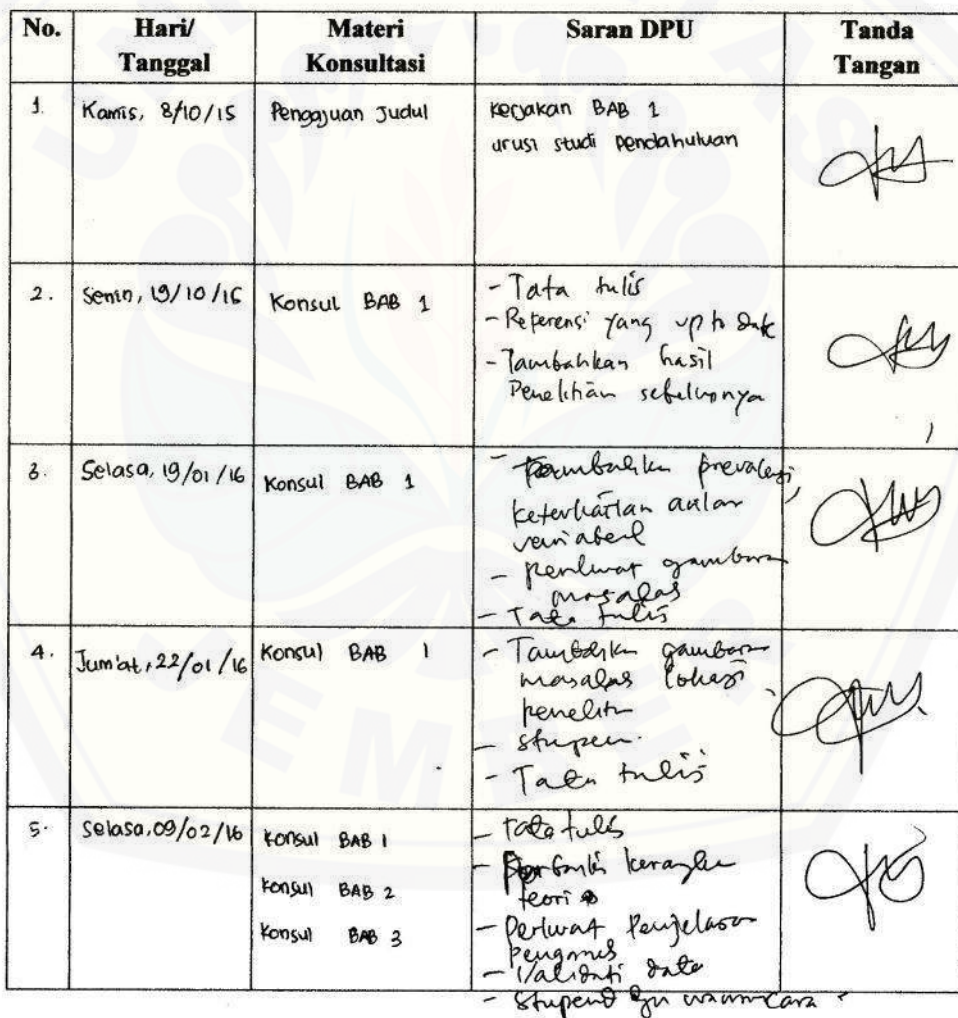 No. Hari/ Materi Saran DPU Tanda
Tanggal Konsultasi Tangan
1. Kamis, 8/10/15 Pengajuan Judul Kerjakan BAB 1
urusi studi pendahuluan
2. Senin, 19/10/15 Konsul BAB 1 - Tata tulis
- Referensi yang up to date
- Tambahkan hasil
Penelitian sebelumnya
3. Selasa, 19/01/16 Konsul BAB 1 - Tambahkan prevalensi,
keterkaitan antar
variabel
- perkuat gambaran
masalah
- Tata tulis
4. Jum'at, 22/01/16 Konsul BAB 1 - Tambahkan gambaran
masalah lokasi
penelitian
- Stupen.
- Tata tulis
5. Selasa, 09/02/16 Konsul BAB 1 - Tata tulis
Konsul BAB 2 - kerangka
teori
Konsul BAB 3 - Perkuat Penjelasan
- Validasi data
- Stupend wawancara
JEMBER